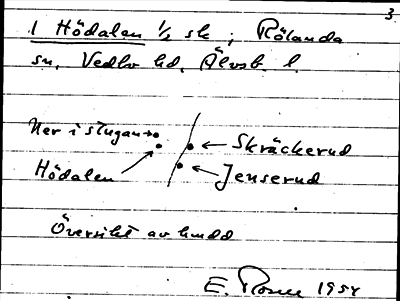 3
1 Hödalen 1/2 sk ; Rölanda
sn. Vedbo hd. Älvsb. l.
Ner i stugan
Skräckerud
Hödalen
Jenserud
Översikt av
E. 1954